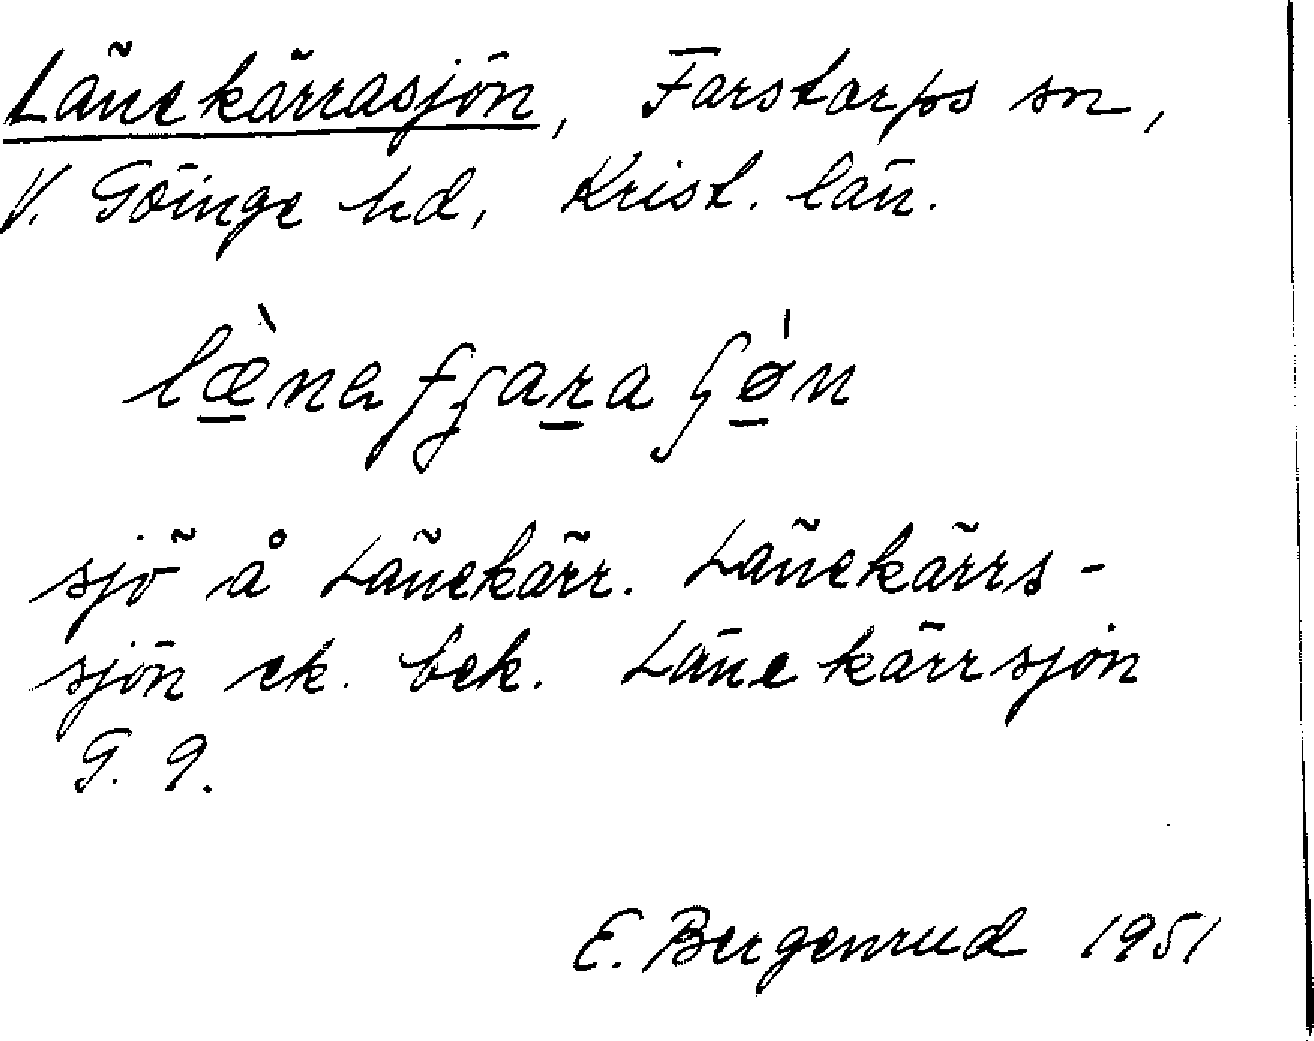 Länekärrasjön, Farstorps sn,
V. Göinge hd, Krist. län.
sjö å Länekärr. Länekärrs-
sjön ek. bek. Länekärrsjön
G. 9.
E. Bergenrud 1951